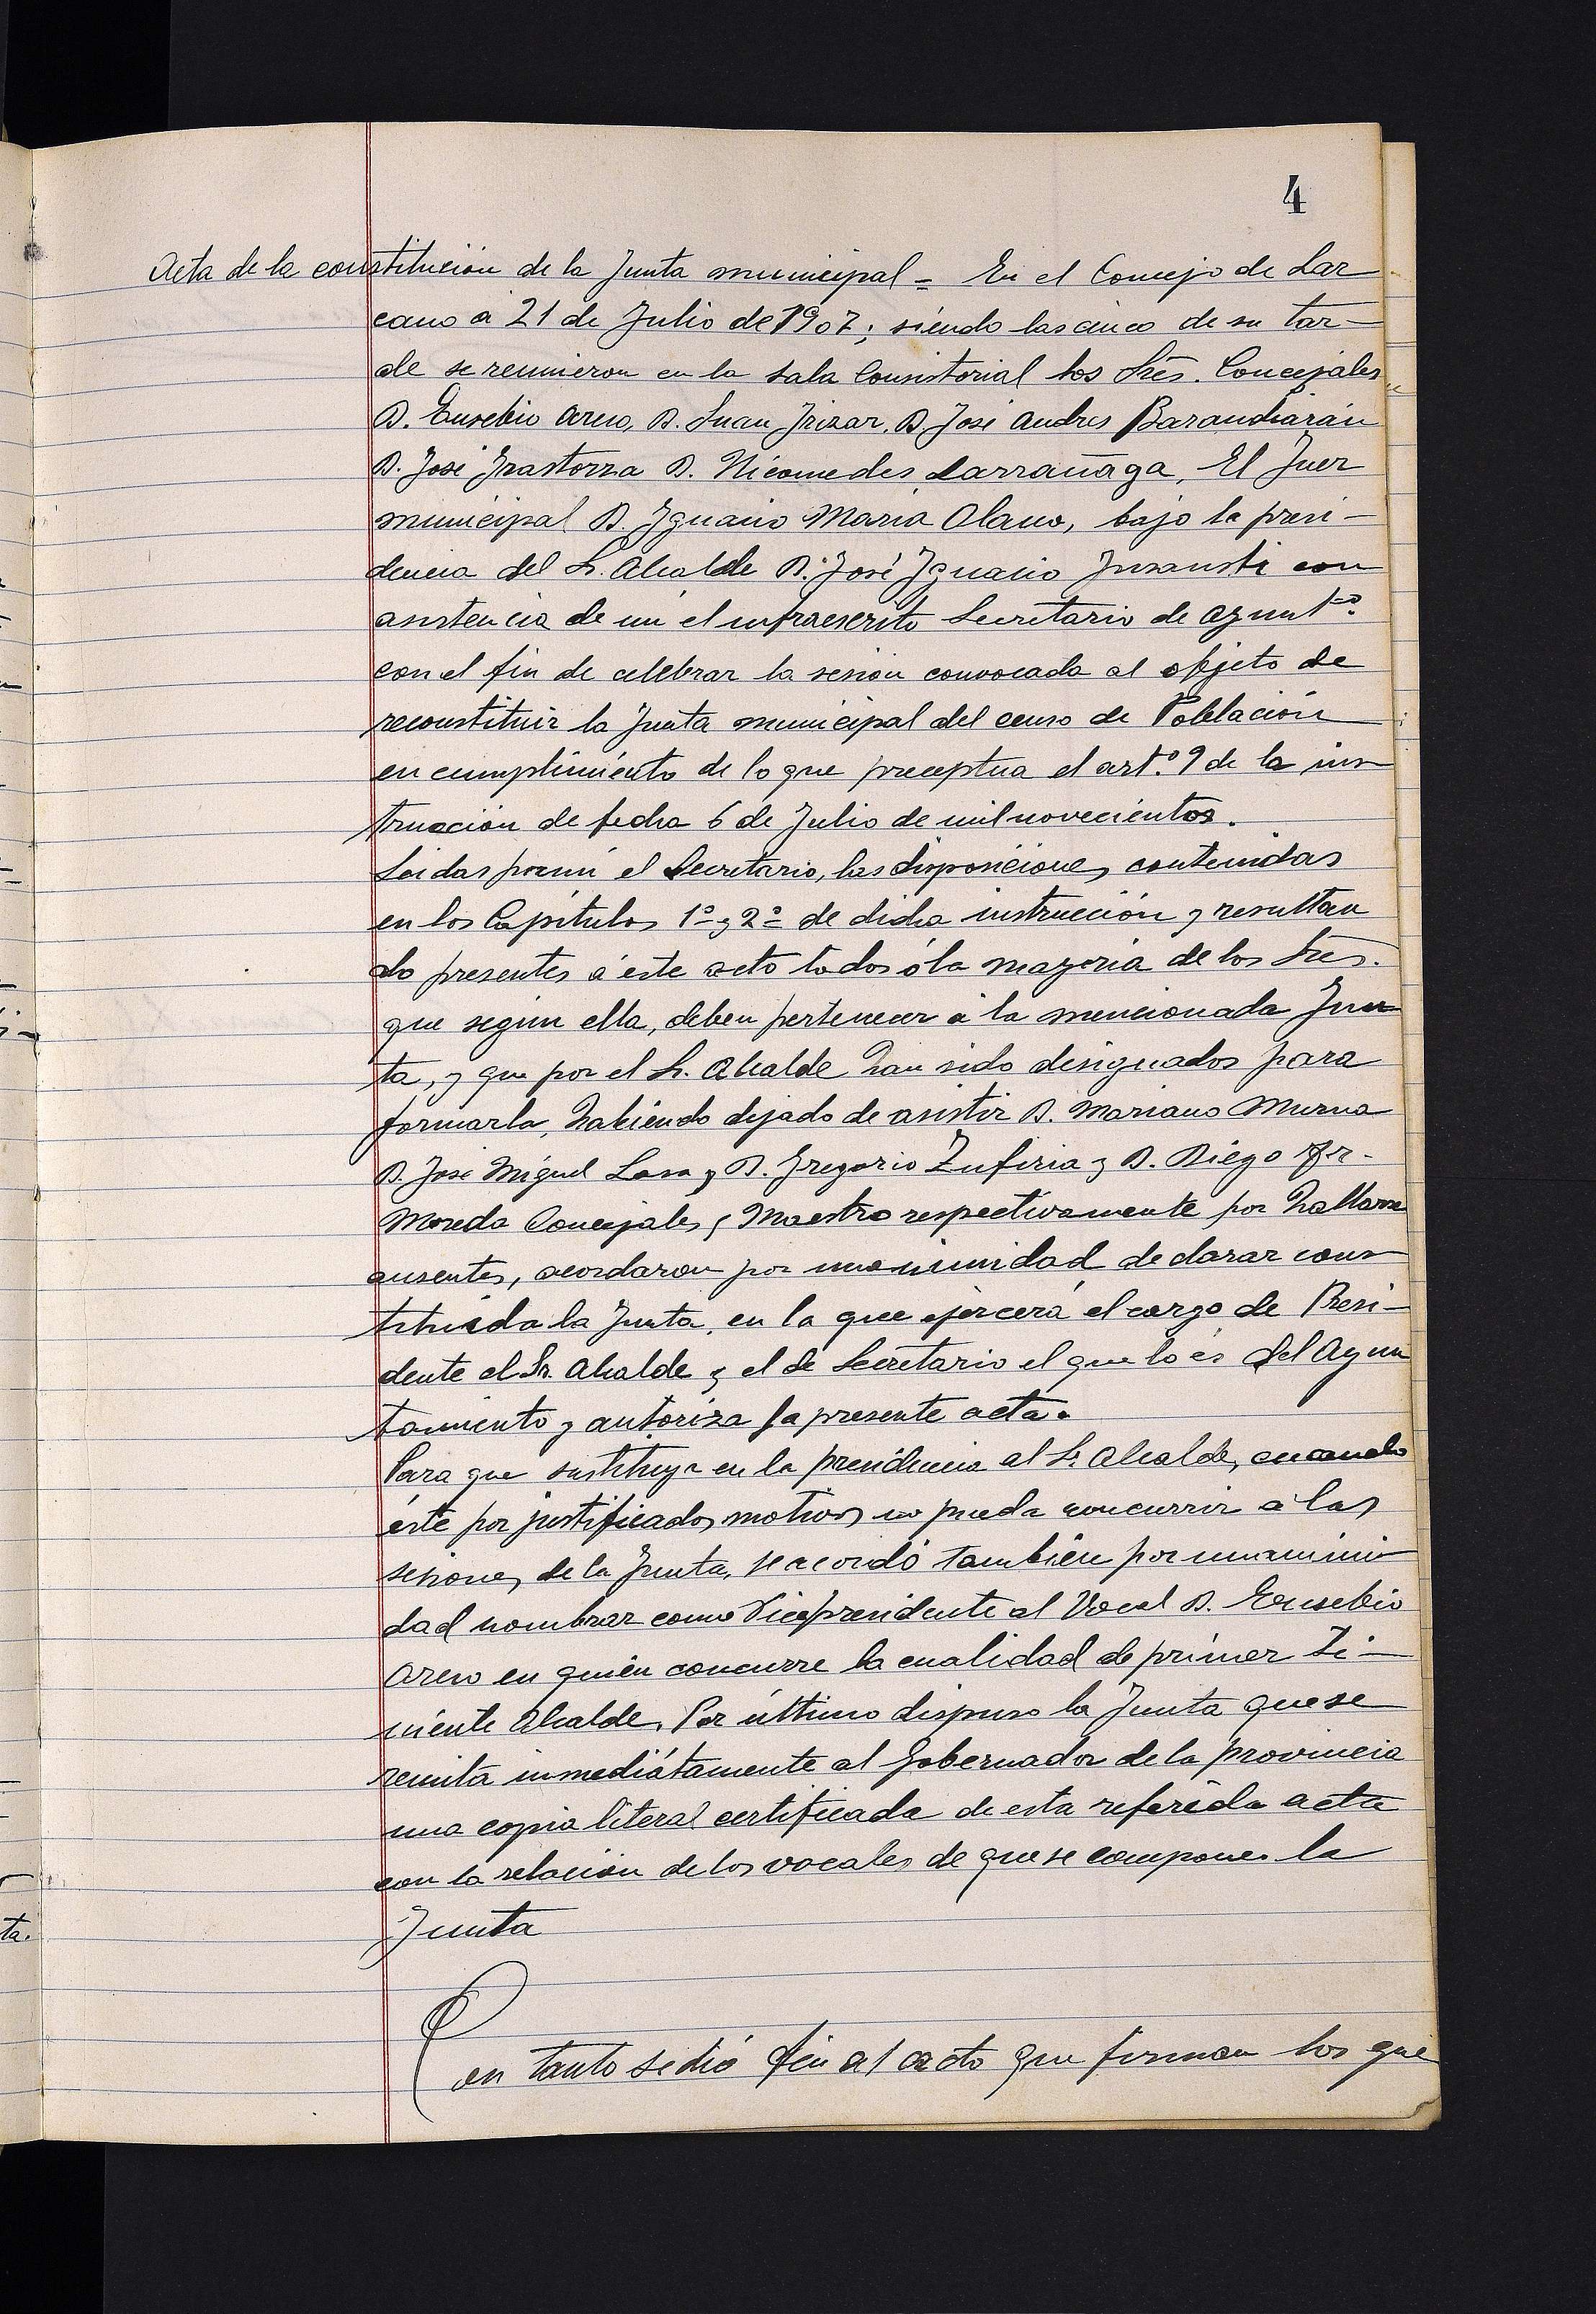 4
Acta de la constitución de la Junta municipal = En el Concejo de Laz
cano á 21 de Julio de 1907; siendo las cinco de su tar-
de se reunieron en la Sala Consistorial los Sres. Concejales
D. Eusebio Areso, D. Juan Irizar, D. José Andres Barandiarán
D. José Irastorza D. Nicomedes Larrañaga, El Juez
municipal D. Ignacio Maria Olano, bajo la presi-
dencia del Sr. Alcalde D. José Ignacio Insausti con
asistencia de mi el infraescrito Secretario de Ayuntº
con el fin de celebrar la sesion convocada al objeto de
reconstituir la Junta municipal del censo de Poblacion
en cumplimiento de lo que preceptua el artº 9 de la ins
trucción de fecha 6 de Julio de mil novecientos.
Leidas por mi el Secretario, las disposiciones contenidas
en los Capítulos 1º y 2º de dicha instrucción y resultan
do presentes á este acto todos ó la mayoria de los Sres.
que segun ella, deben pertenecer á la mencionada Jun
ta, y que por el Sr. Alcalde han sido designados para
formarla, habiendo dejado de asistir D. Mariano Murua
D. Jose Miguel Lasa y D. Gregorio Zufiria y D. Diego
Moreda Concejales y Maestro respectivamente por hallarse
ausentes, acordaron por unanimidad declarar cons
tituida la Junta, en la que ejercerá el cargo de Presi-
dente el Sr. Alcalde y el de Secretario el que lo es del Ayun
tamiento y autoriza la presente acta.
Para que sustituya en la presidencia al Sr. Alcalde, cuando
éste por justificados motivos no pueda concurrir á las
sesiones de la Junta, se acordó también por unanimi
dad nombrar como Vicepresidente al Vocal D. Eusebio
Areso en quien concurre la cualidad de primer Te-
niente Alcalde. Por último dispuso la Junta que se
remita inmediátamente al Gobernador de la provincia
una copia literal certificada de esta referida acta
con la relacion de los vocales de que se compone la
Junta
en tanto se dió fin al acto que firman los que